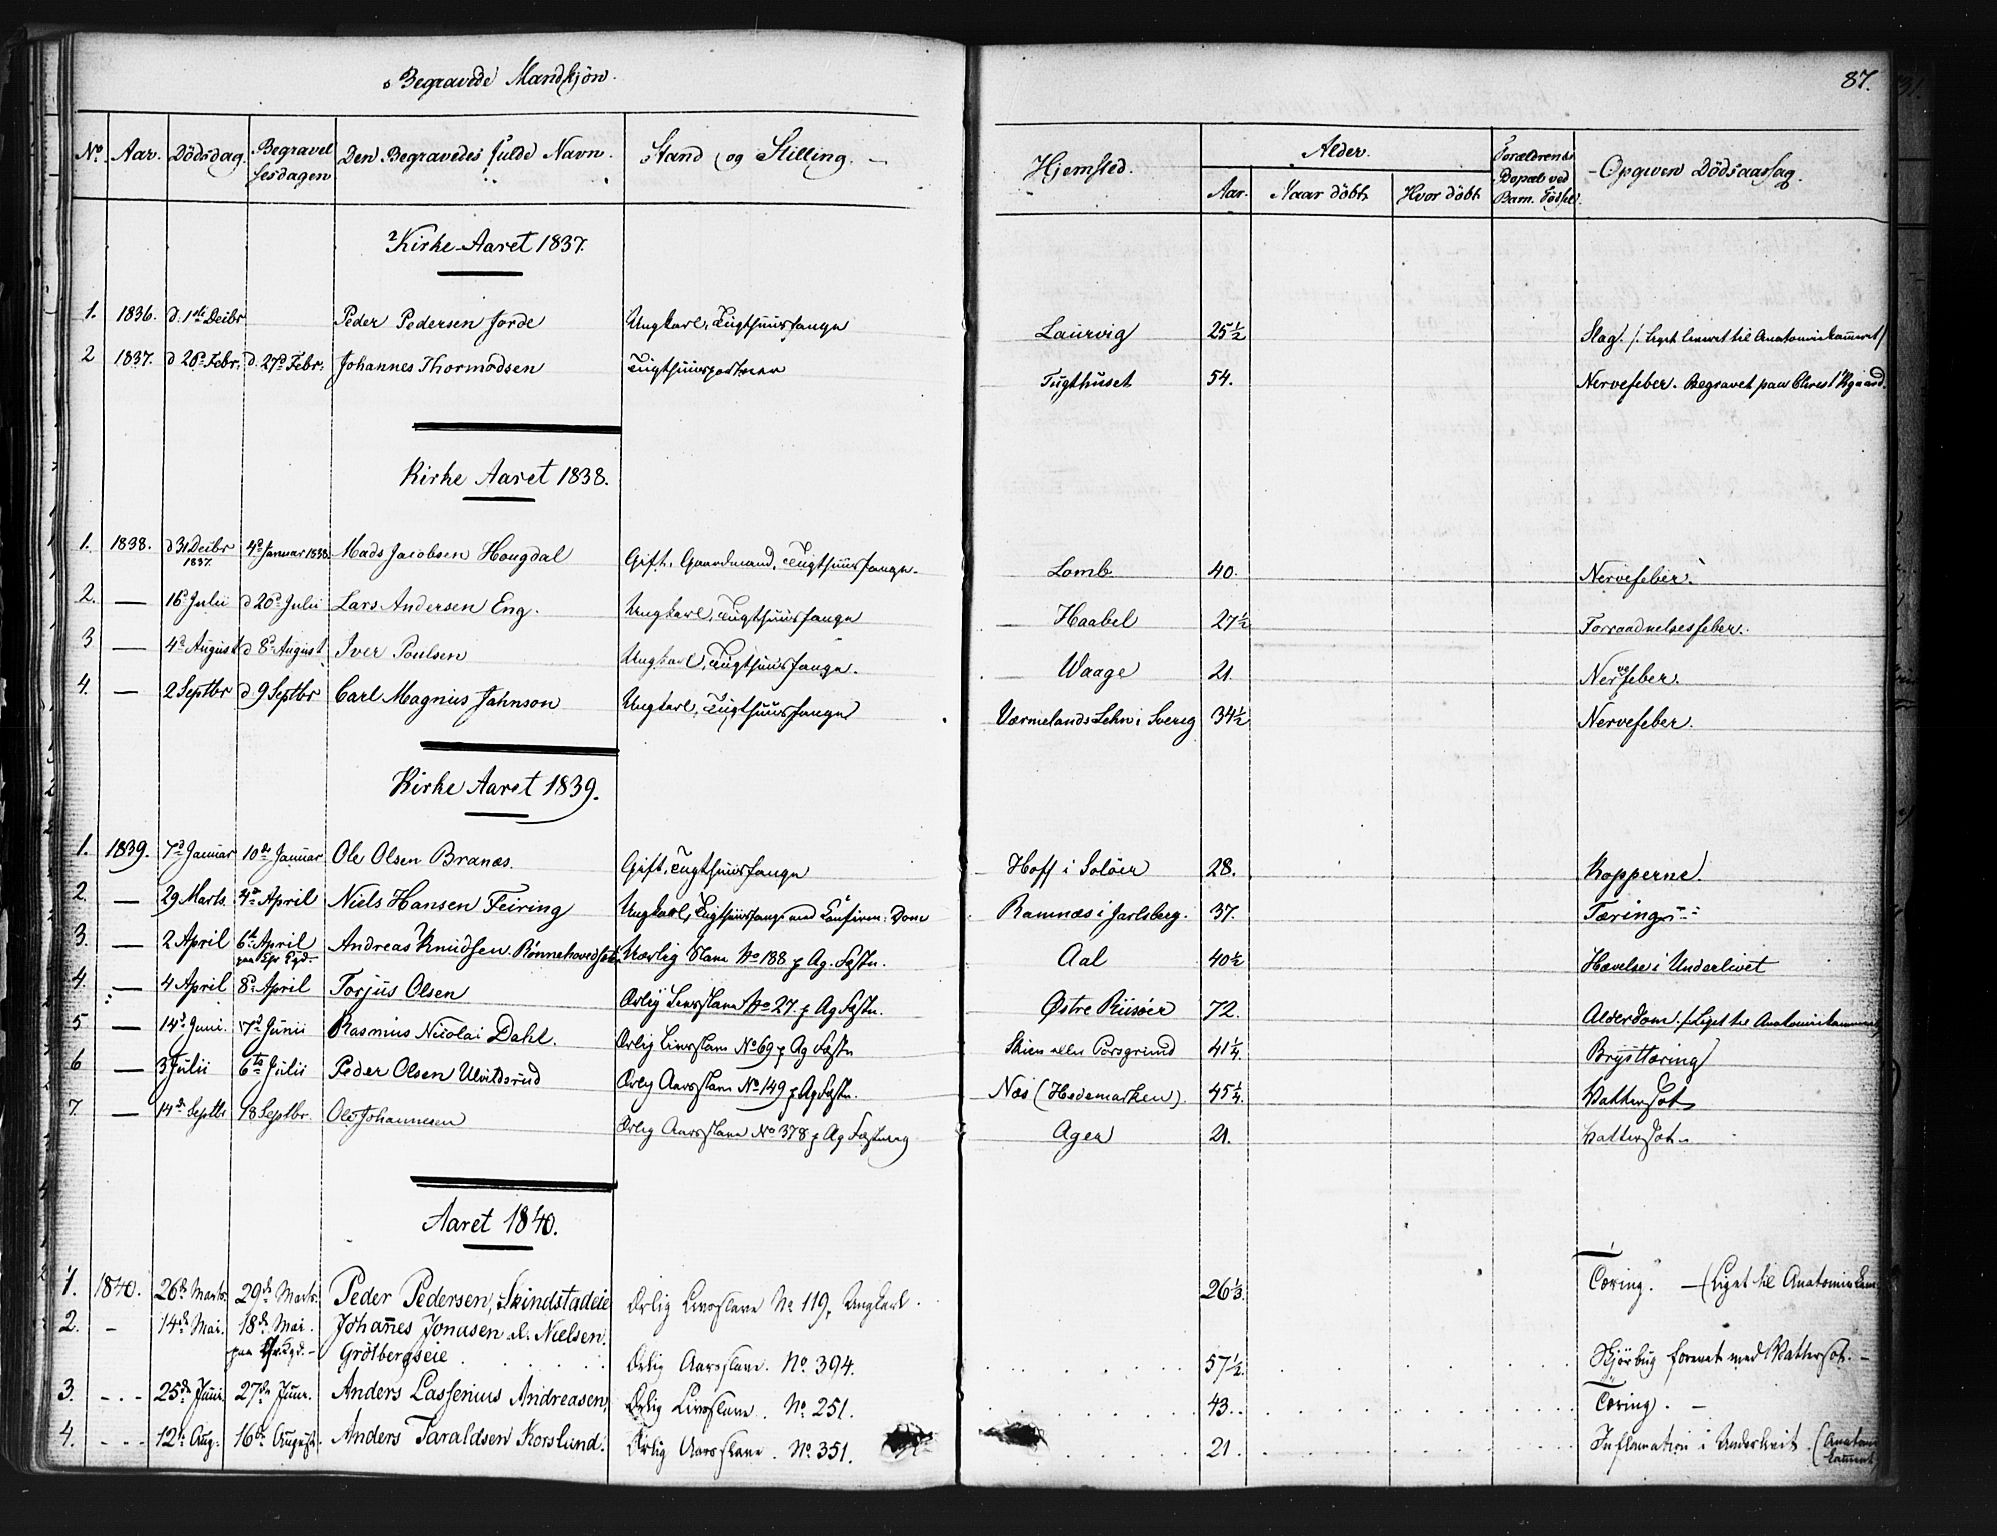 Begravede Mandkjøn.
87.
No. Aar. Dödsdag. Begravelsesdagen Den Begravedes fulde Navn. Stand og Stilling. Hjemsted. Alder. Aar. Naar döbt. Hvor döbt. Forældrenes Bopæl ved Barn. Födsel. Opgiven Dödsaarsag.
Kirke-Aaret 1837.
1. 1836. d. 1ste Decbr Peder Pedersen Jorde Ungkarl, Tugthuusfange Laurvig 25½ Slag. /: Liget leveret til Anatomiekammeret
2 1837. d 26de Febr. d. 27de Febr. Johannes Thormodsen Tugthuusportner Tugthuset 54. Nervefeber. Begravet paa Christ Kgaard.
Kirke Aaret 1838.
1. 1838. d 31 Decbr 1837. 4de Januar 1838. Mads Jacobsen Hougdal Gift. Gaardmand, Tugthuusfange. Lomb 40. Nervefeber.
2. — 16de Julii d 20de Julii Lars Andersen Eng. Ungkarl, Tugthuusfange Haabel 27½ Forraadnelsesfeber.
3 — 4de August d 8de August Iver Poulsen Ungkarl, Tugthuusfange. Waage 21. Nervefeber.
4. — 2 Septbr d. 9 Septbr Carl Magnus Jahnson Ungkarl, Tugthuusfange Værmelands Lehn i Sverig 34½ Nervefeber.
Kirke Aaret 1839.
1. 1839. 7de Januar 10de Januar Ole Olsen Branæs. Gift, Tugthuusfange Hoff i Solöer 28. Kopperne.
2. — 29 Marts 4de April Niels Hansen Feiring Ungkarl, Tugthuusfange med Confirm. Dom Ramnæs i Jarlsberg. 37. Tæring
3. — 2 April 6te April Andreas Knudsen Rønnehovedsæt Uærlig Slave No 188 p Ag. Fæstn. Aal 40½ Hævelse i Underlivet
4. — 4 April 8de April Torjus Olsen Ærlig Livsslave No 27 p Ag Fæstn. Østre Riisöer 72. Alderdom. /: Liget til Anatomiekammeret
5 — 14de Juni. 17de Junii Rasmus Nicolai Dahl. Ærlig Livsslave No 69 p Ag Fæstn Skien eller Porsgrund 41¼ Brysttæring
6 — 3 Julii 6te Julii Peder Olsen Ulvildsrud Ærlig Aarsslave No 149 p Ag Fæstn. Næs (Hedemarken) 45¼. Vattersot
7. — 14de Septbr 18 Septbr. Ole Johannesen Ærlig Aarsslave No 378 p Ag Fæstning Ager 21. Vattersot.
Aaret 1840.
1. 1840. 26de Marts 29de Marts. Peder Pedersen, Skindstadeie Ærlig Livsslave No 119, Ungkarl. 26⅓. Tæring. — (Liget til Anatomiekam
2. - 14de Mai. 18de Mai. Johannes Jonasen el. Nielsen.
Grötbergseie Ærlig Aarsslave. No. 394. 57½. Skjörbug forenet med Vattersot. —
3. - 25de Juni 27de Juni. Anders Lassenius Andreasen, Ærlig Livsslave. No. 251. 43. Tæring. —
4. - 12te Aug. 16de August. Anders Taraldsen Korslund. Ærlig Aarsslave. No. 351. 21. Inflamation i Underlivet. (Anatom
kammer